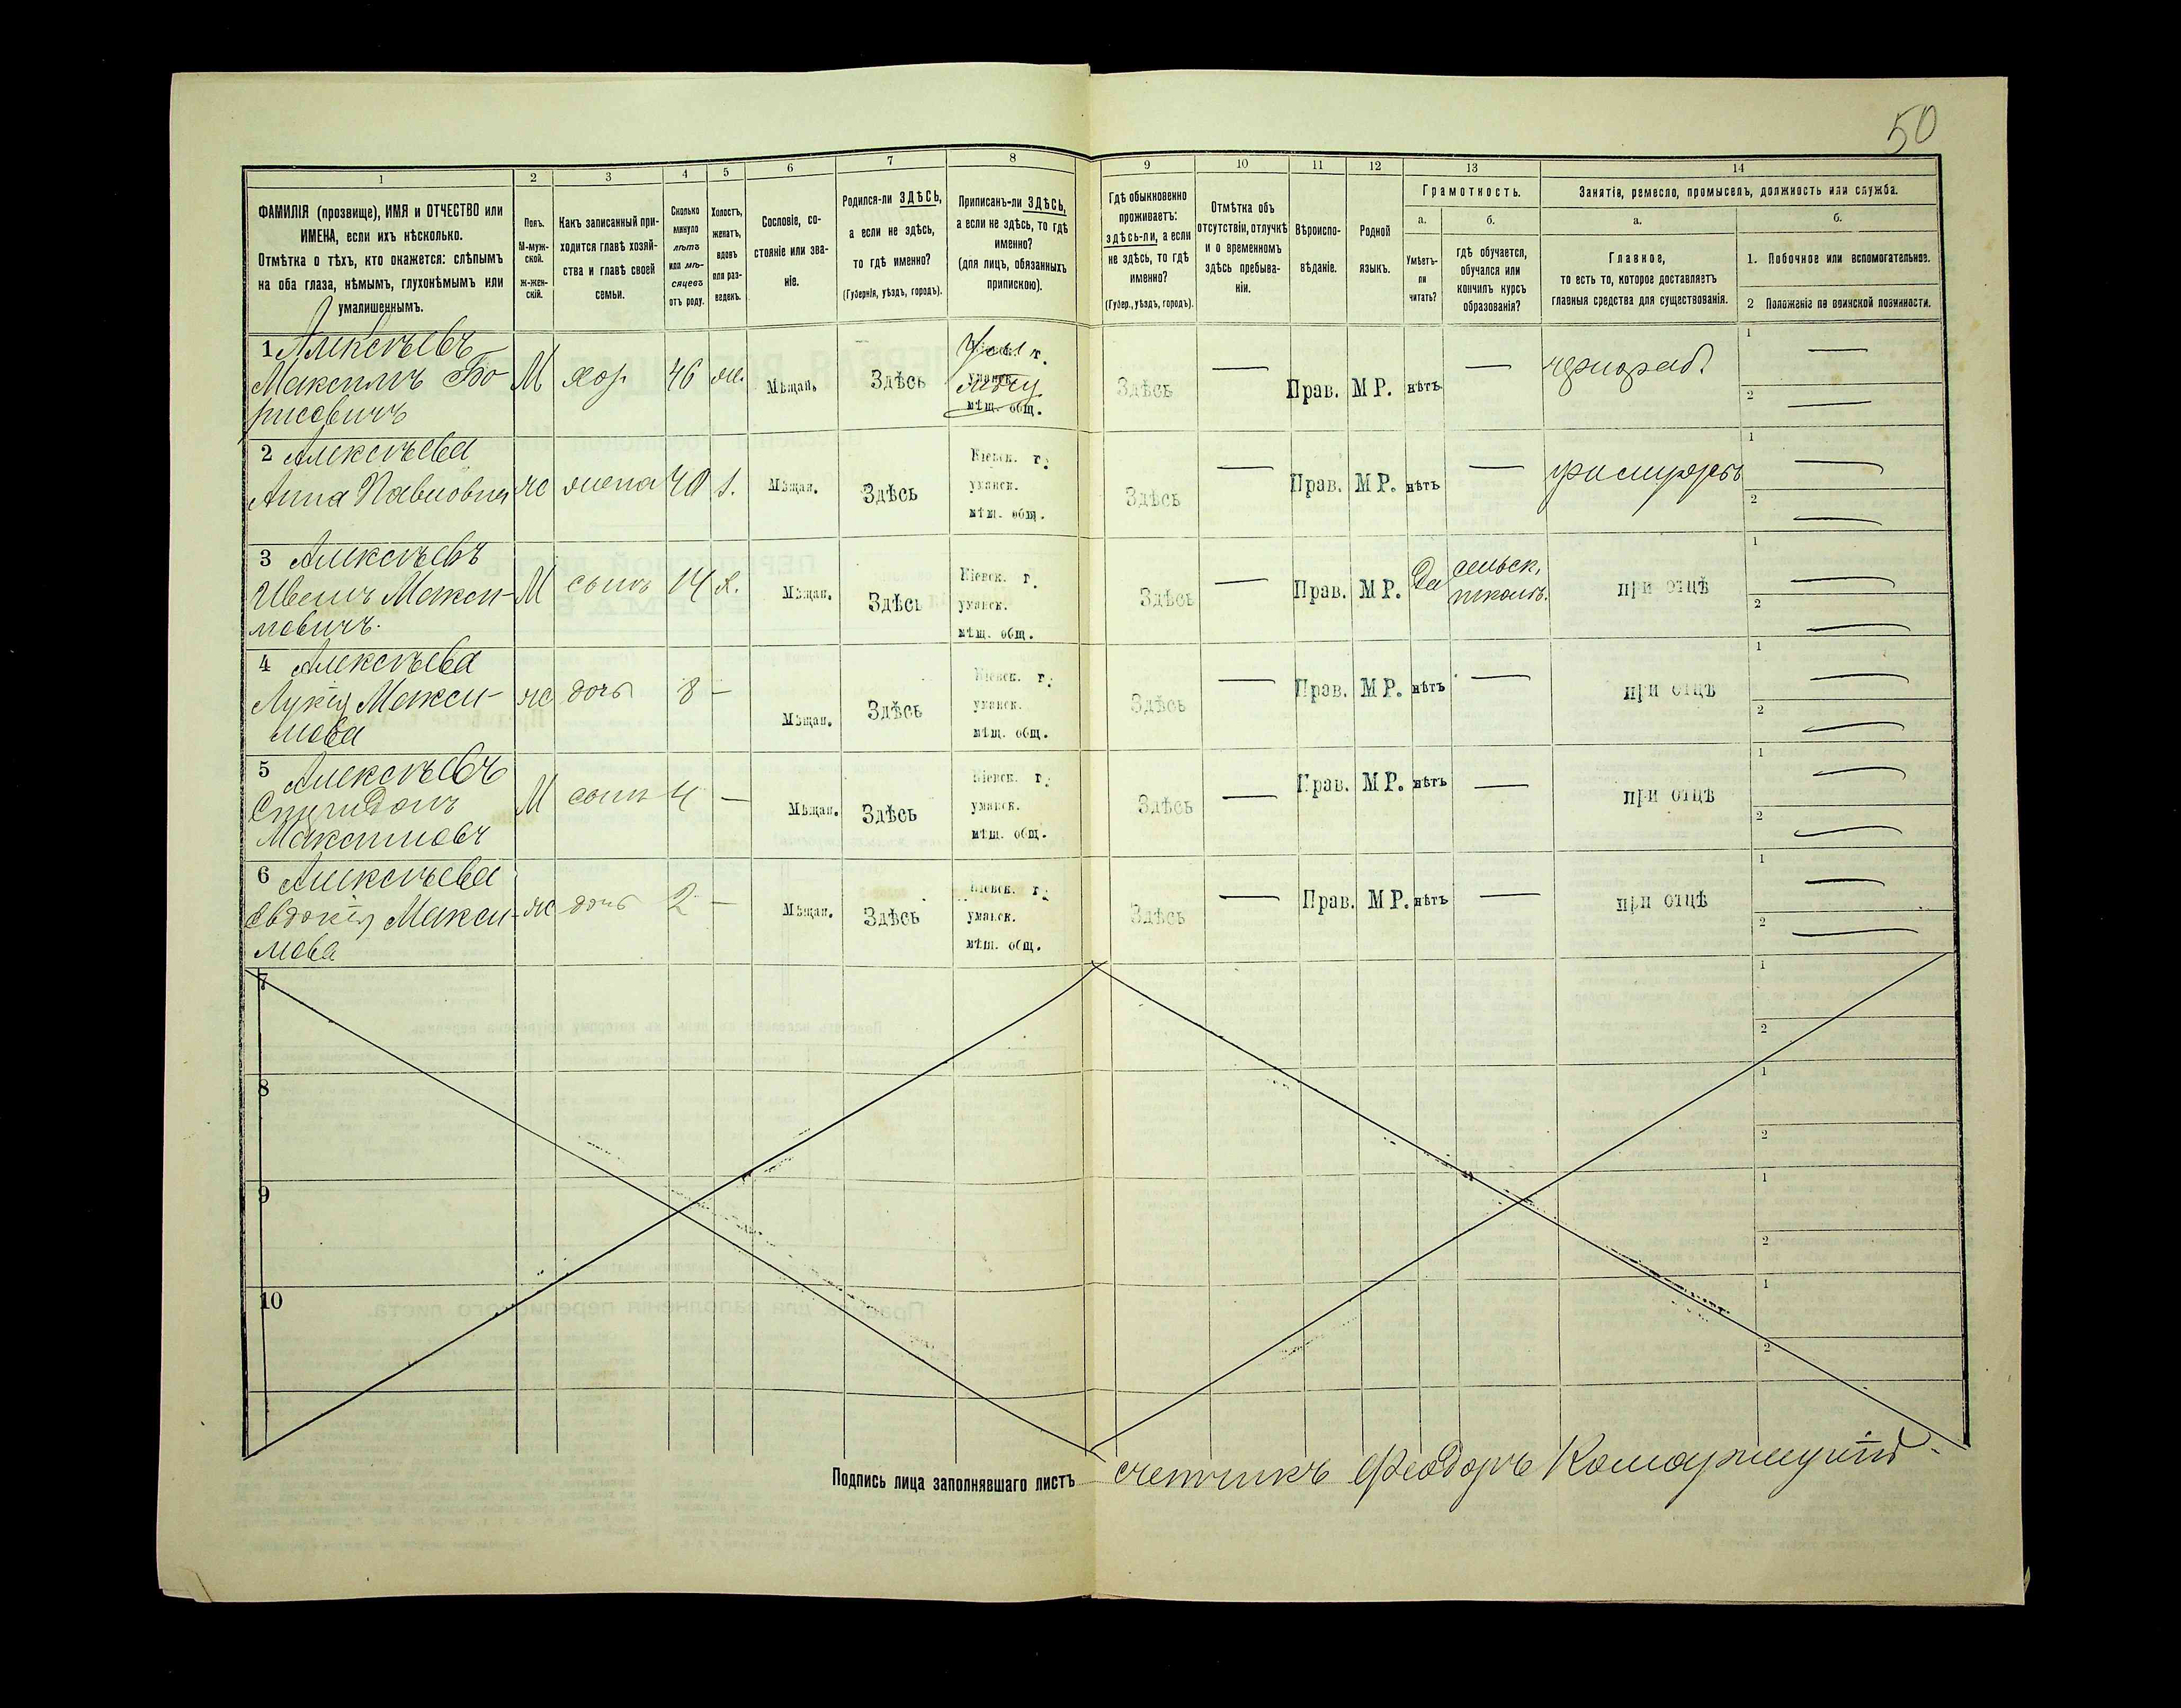 50
1 2 3 4 5 6 7 8 9 10 11 12 13 14
ФАМИЛІЯ (прозвище), ИМЯ и ОТЧЕСТВО или
ИМЕНА, если ихъ нѣсколько.
Отмѣтка о тѣхъ, кто окажется: слѣпымъ
на оба глаза, нѣмымъ, глухонѣмымъ или
умалишеннымъ.
Полъ.
М-муж-
ской.
ж-жен-
скій.
Какъ записанный при-
ходится главѣ хозяй-
ства и главѣ своей
семьи.
Сколько
минуло
лѣтъ
или мѣ-
сяцевъ
отъ роду.
Холостъ,
женатъ,
вдовъ
или раз-
веденъ.
Сословіе, со-
стояніе или зва-
ніе.
Родился-ли ЗДѢСЬ,
а если не здѣсь,
то гдѣ именно?
(Губернія, уѣздъ, городъ).
Приписанъ-ли ЗДѢСЬ,
а если не здѣсь, то гдѣ
именно?
(для лицъ, обязанныхъ
припискою).
Гдѣ обыкновенно
проживаетъ:
здѣсь-ли, а если
не здѣсь, то гдѣ
именно?
(Губер., уѣздъ, городъ).
Отмѣтка объ
отсутствіи, отлучкѣ
и о временномъ
здѣсь пребыва-
ніи.
Вѣроиспо-
вѣданіе.
Родной
языкъ.
Грамотность.
а.
Умѣетъ-
ли
читать?
б.
гдѣ обучается,
обучался или
кончилъ курсъ
образованія?
Занятіе, ремесло, промыселъ, должность или служба.
а.
Главное,
то есть то, которое доставляетъ
главныя средства для существованія.
б.
1. Побочное или вспомогательное.
2 Положеніе по воинской повинности.
1 Алексѣевъ
Максимъ Бо-
рисовичъ
М хоз. 46 ж. Мѣщан. Здѣсь
г.
уманск.
мѣщ. общ.
Здѣсь — Прав. М Р. нѣтъ — чернораб.
1 —
2 —
2 Алексѣева
Анна Павловна
ж жена 40 з. Мѣщан. Здѣсь
Кіевск. г.
уманск.
мѣщ. общ.
Здѣсь — Прав. М Р. нѣтъ —
1 —
2 —
3 Алексѣевъ
Иванъ Макси-
мовичъ.
М сынъ 14 х. Мѣщан. Здѣсь
Кіевск. г.
уманск.
мѣщ. общ.
Здѣсь — Прав. М Р. Да сельск.
школѣ.
при отцѣ
1 —
2 —
4 Алексѣева
Лукія Макси-
мова
ж дочь 8 — Мѣщан. Здѣсь
Кіевск. г.
уманск.
мѣщ. общ.
Здѣсь — Прав. М Р. нѣтъ — при отцѣ
1 —
2 —
5 Алексѣевъ
Спиридонъ
Максимовъ
М сынъ 4 — Мѣщан. Здѣсь
Кіевск. г.
уманск.
мѣщ. общ.
Здѣсь — Прав. М Р. нѣтъ — при отцѣ
1 —
2 —
6 Алексѣева
Евдокія Макси-
мова
ж дочь 2 — Мѣщан. Здѣсь
Кіевск. г.
уманск.
мѣщ. общ.
Здѣсь — Прав. М Р. нѣтъ — при отцѣ
1 —
2 —
7
1
2
8
1
2
9
1
2
10
1
2
Подпись лица заполнявшаго листъ счетчикъ Феодоръ Комарницкій